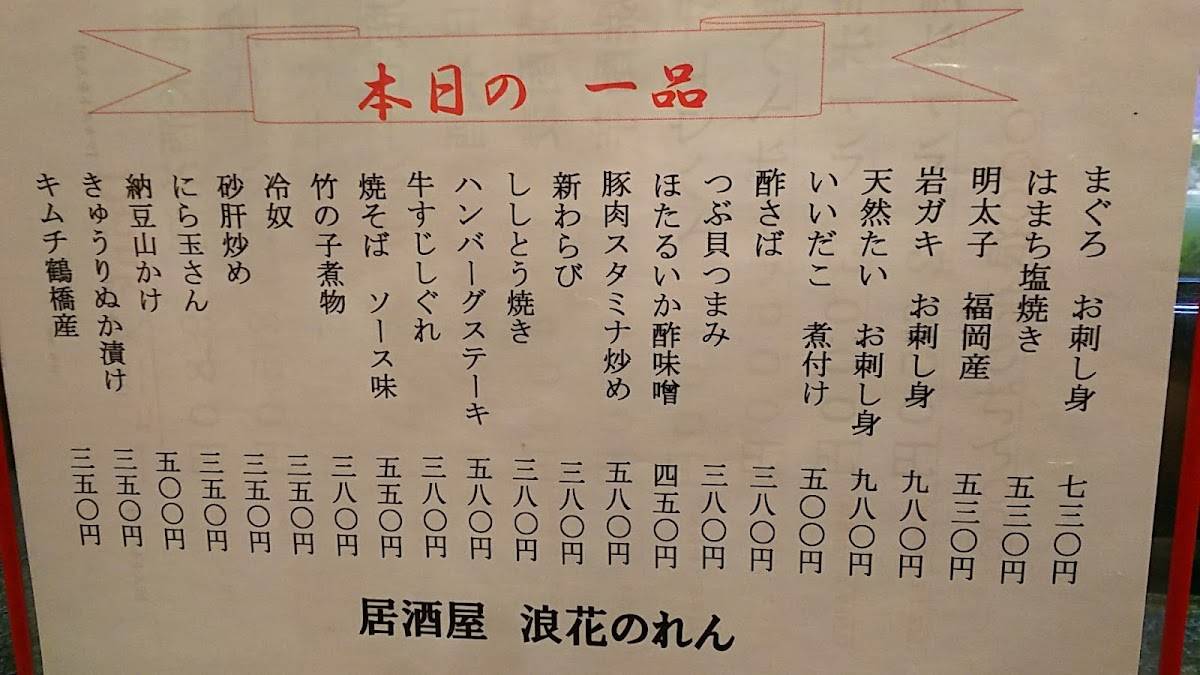 本日の 一品
まぐろ お刺し身 七三〇円
はまち塩焼き 五三〇円
明太子 福岡産 五三〇円
岩ガキ お刺し身 九八〇円
天然たい お刺し身 九八〇円
いいだこ 煮付け 五〇〇円
酢さば 三八〇円
つぶ貝つまみ 三八〇円
ほたるいか酢味噌 四五〇円
豚肉スタミナ炒め 五八〇円
新わらび 三八〇円
ししとう焼き 三八〇円
ハンバーグステーキ 五八〇円
牛すじしぐれ 三八〇円
焼そば ソース味 五五〇円
竹の子煮物 三八〇円
冷奴 三五〇円
砂肝炒め 三五〇円
にら玉さん 三五〇円
納豆山かけ 五〇〇円
きゅうりぬか漬け 三五〇円
キムチ鶴橋産 三五〇円
居酒屋 浪花のれん